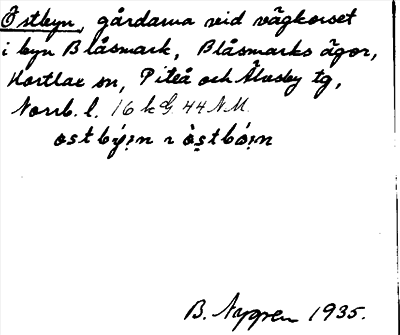 Östbyn, gårdarna vid vägkorset
i byn Blåsmark, Blåsmarks ägor,
Hortlax sn, Piteå och Älvsby tg,
Norrb. l. 16 k G. 44 NM.
B. Nygren 1935.